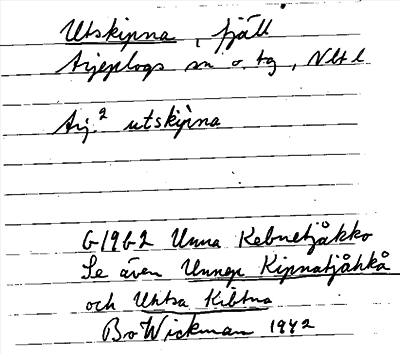 Utskipna, fjäll
Arjeplogs sn o. tg, Nbt l
Arj.² utskipna
G 1962 Unna Kebnetjåkko
Se även Unnep Kipnatjåhkå
och Uhtsa Kibtna
Bo Wickman 1942